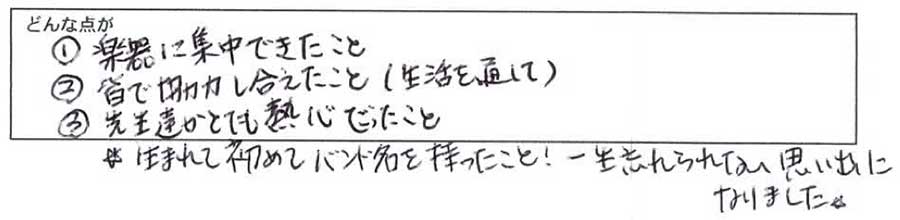 どんな点が
① 楽器に集中できたこと
② 皆で協力し合えたこと(生活を通して)
③ 先生達がとても熱心だったこと
※ 生まれて初めてバンド名を持ったこと!一生忘れられない思い出に
なりました。